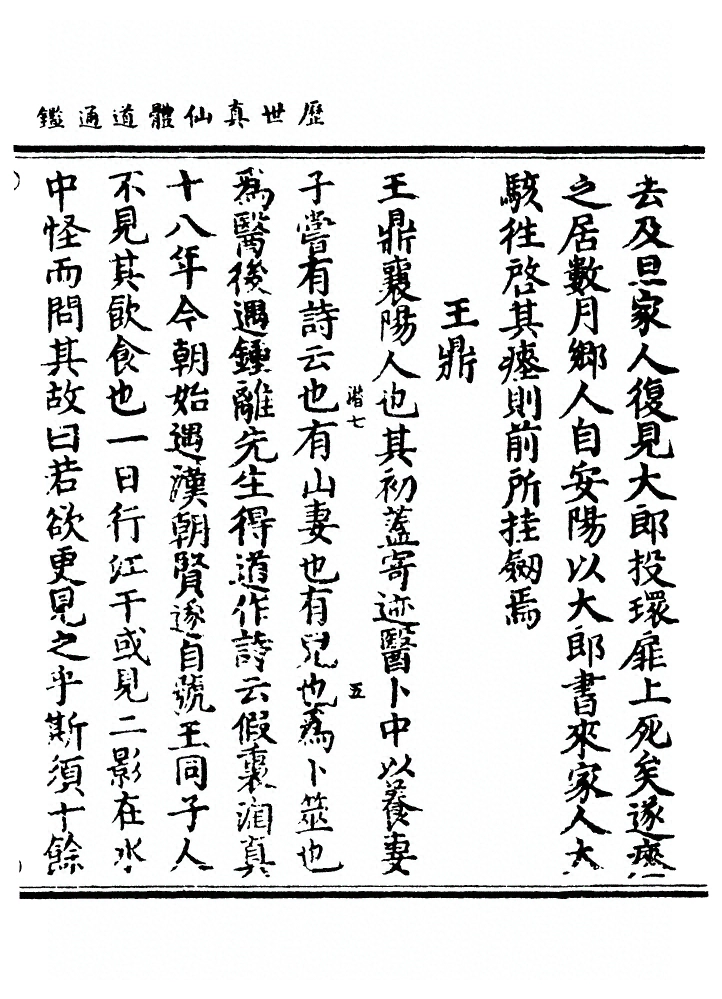 歷世真仙體道通鑑
去及旦家人復見大郎投環扉上死矣遂瘞
之居數月鄉人自安陽以大郎書來家人大
駭往啓其瘞則前所挂劒焉
王鼎
王鼎襄陽人也其初蓋寄迹醫卜中以養妻
潜七
五
子嘗有詩云也有山妻也有兒也爲卜筮也
爲醫後遇鍾離先生得道作詩云假裏淘真
十八年今朝始遇漢朝賢遂自號王同子人
不見其飲食也一日行江干或見二影在水
中怪而問其故曰若欲更見之乎斯須十餘